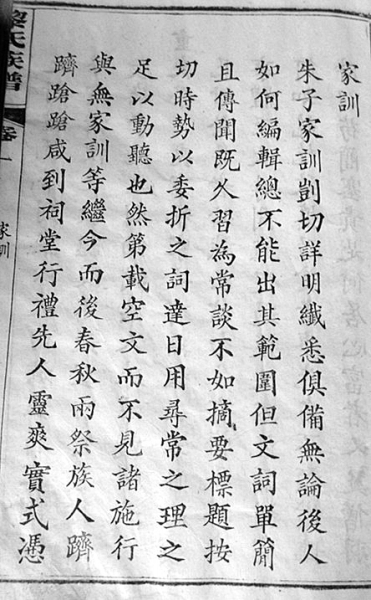 家訓
朱子家訓剴切詳明纖悉俱備無論後人
如何編輯總不能出其範圍但文詞單簡
且傳聞既久習為常談不如摘要標題按
切時勢以委折之詞達日用尋常之理之
足以動聽也然第載空文而不見諸施行
與無家訓等繼今而後春秋兩祭族人躋
躋蹌蹌咸到祠堂行禮先人靈爽實式憑
黎氏族譜
卷一
家訓